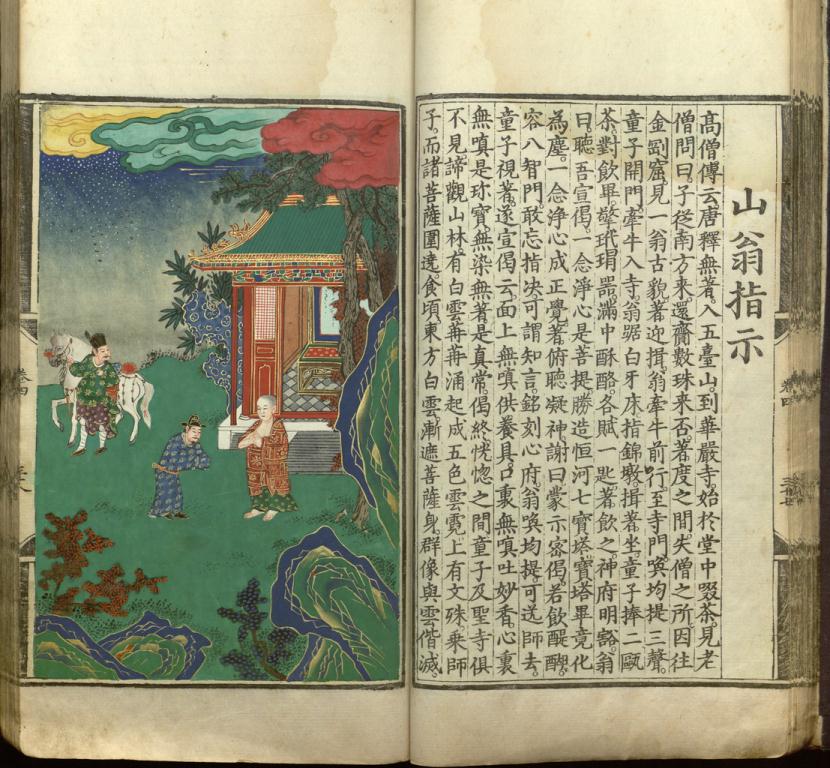 山翁指示
高僧傳云。唐釋無著。入五臺山。到華嚴寺。始於堂中啜茶。見老
僧問曰。子從南方來。還齎數珠来否。著度之間。失僧之所。因往
金剛窟。見一翁古貌。著迎揖。翁牽牛前行。至寺門。喚均提三聲。
童子開門。牽牛入寺。翁踞白牙床。指錦墩揖著坐。童子捧二甌
茶。對飲畢。擎玳瑁噐。滿中酥酪。各賦一匙。著飲之。神府明豁。翁
曰。聽吾宣偈。一念淨心是菩提。勝造恒河七寶塔。寶塔畢竟化
為塵。一念淨心成正覺。著俯聽凝神。謝曰。蒙示宻偈。若飲醍醐。
容入智門。敢忘指决。可謂知言。銘刻心府。翁喚均提。可送師去。
童子視著。遂宣偈云。面上無嗔供養具。口裏無嗔吐妙香。心裏
無嗔是珎寶。無染無著是真常。偈終。恍惚之間。童子及聖寺俱
不見。諦觀山林。有白雲苒苒涌起。成五色雲霓。上有文殊乘師
子。而諸菩薩圍遶。食頃。東方白雲。漸遮菩薩身。群像與雲偕滅。
卷四
卷四